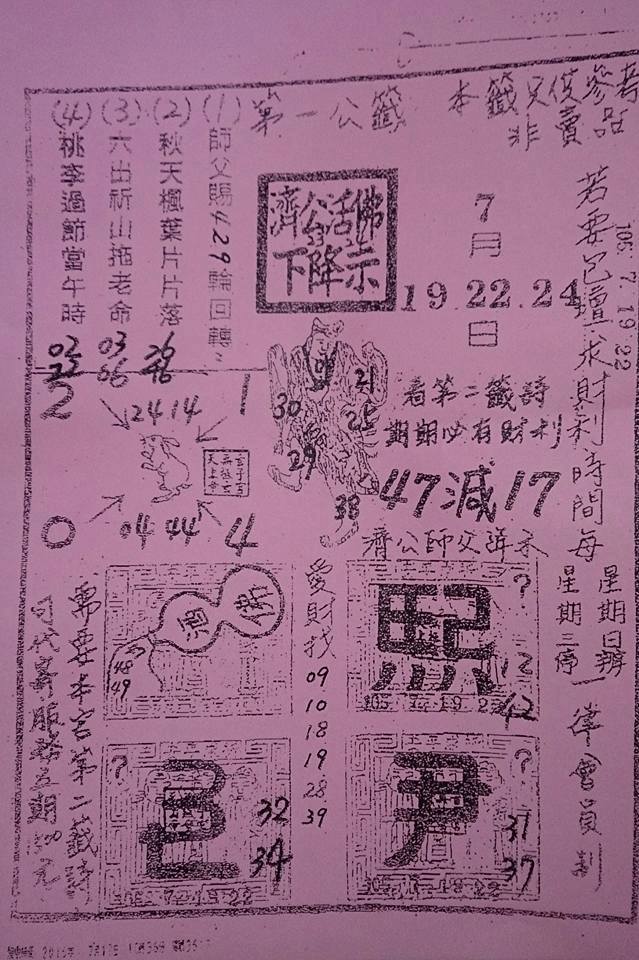 本籤只供參考
非賣品
第一公籤
(1) 師父賜429輪回轉
(2) 秋天楓葉片片落
(3) 六出祈山拖老命
(4) 桃李過節當午時
26
46
03
06
02
22
濟公活佛
下降示
7月
19.22.24
日
105 7 19 22
若要已壇求財利時間每
星期日辨
星期三停
一律會員制
看第二籤詩
期期必有財利
47減17
濟公師父詳示
21
30
25
29
38
2
1
24 14
04 44
0
4
愛財找
09
10
18
19
28
39
酒
佛
48
49
?
12
42
?
32
34
尹
?
31
37
需要本宮第二籤詩